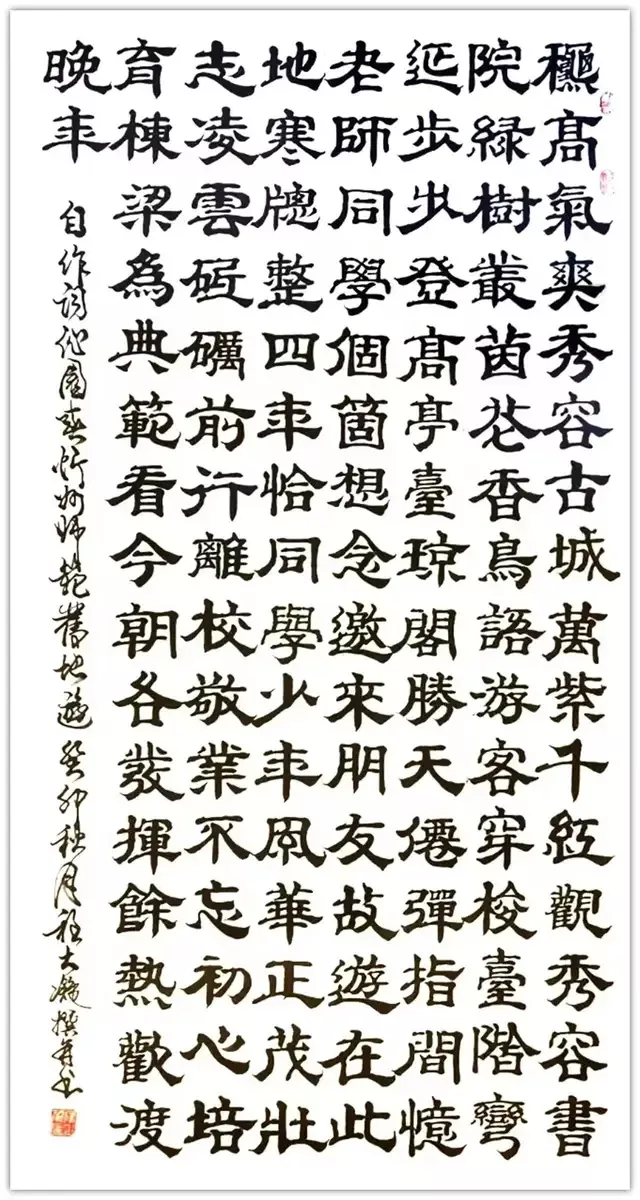 龝高氣爽秀容古城萬紫千紅觀秀容書
院緑樹叢茵花香鳥語游客穿梭臺階彎
延步步登高亭臺琼閣勝天僊彈指間憶
老師同學個箇想念邀來朋友故遊在此
地寒牕整四年恰同學少年風華正茂壯
志凌雲砥礪前行離校敬業不忘初心培
育棟梁為典範看今朝各發揮餘熱歡渡
晚年
自作詞沁園春忻州師範舊地遊癸卯秋月大撰并書